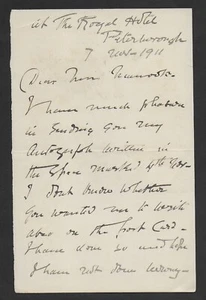 at The Royal Hotel
Peterborough
7 Nov - 1911
Dear Miss
I have much pleasure
in sending you my
Autograph written in
the space marked
I don't know whether
you wanted me to write
also on the front Card -
I have done so and hope
I have not done wrong -